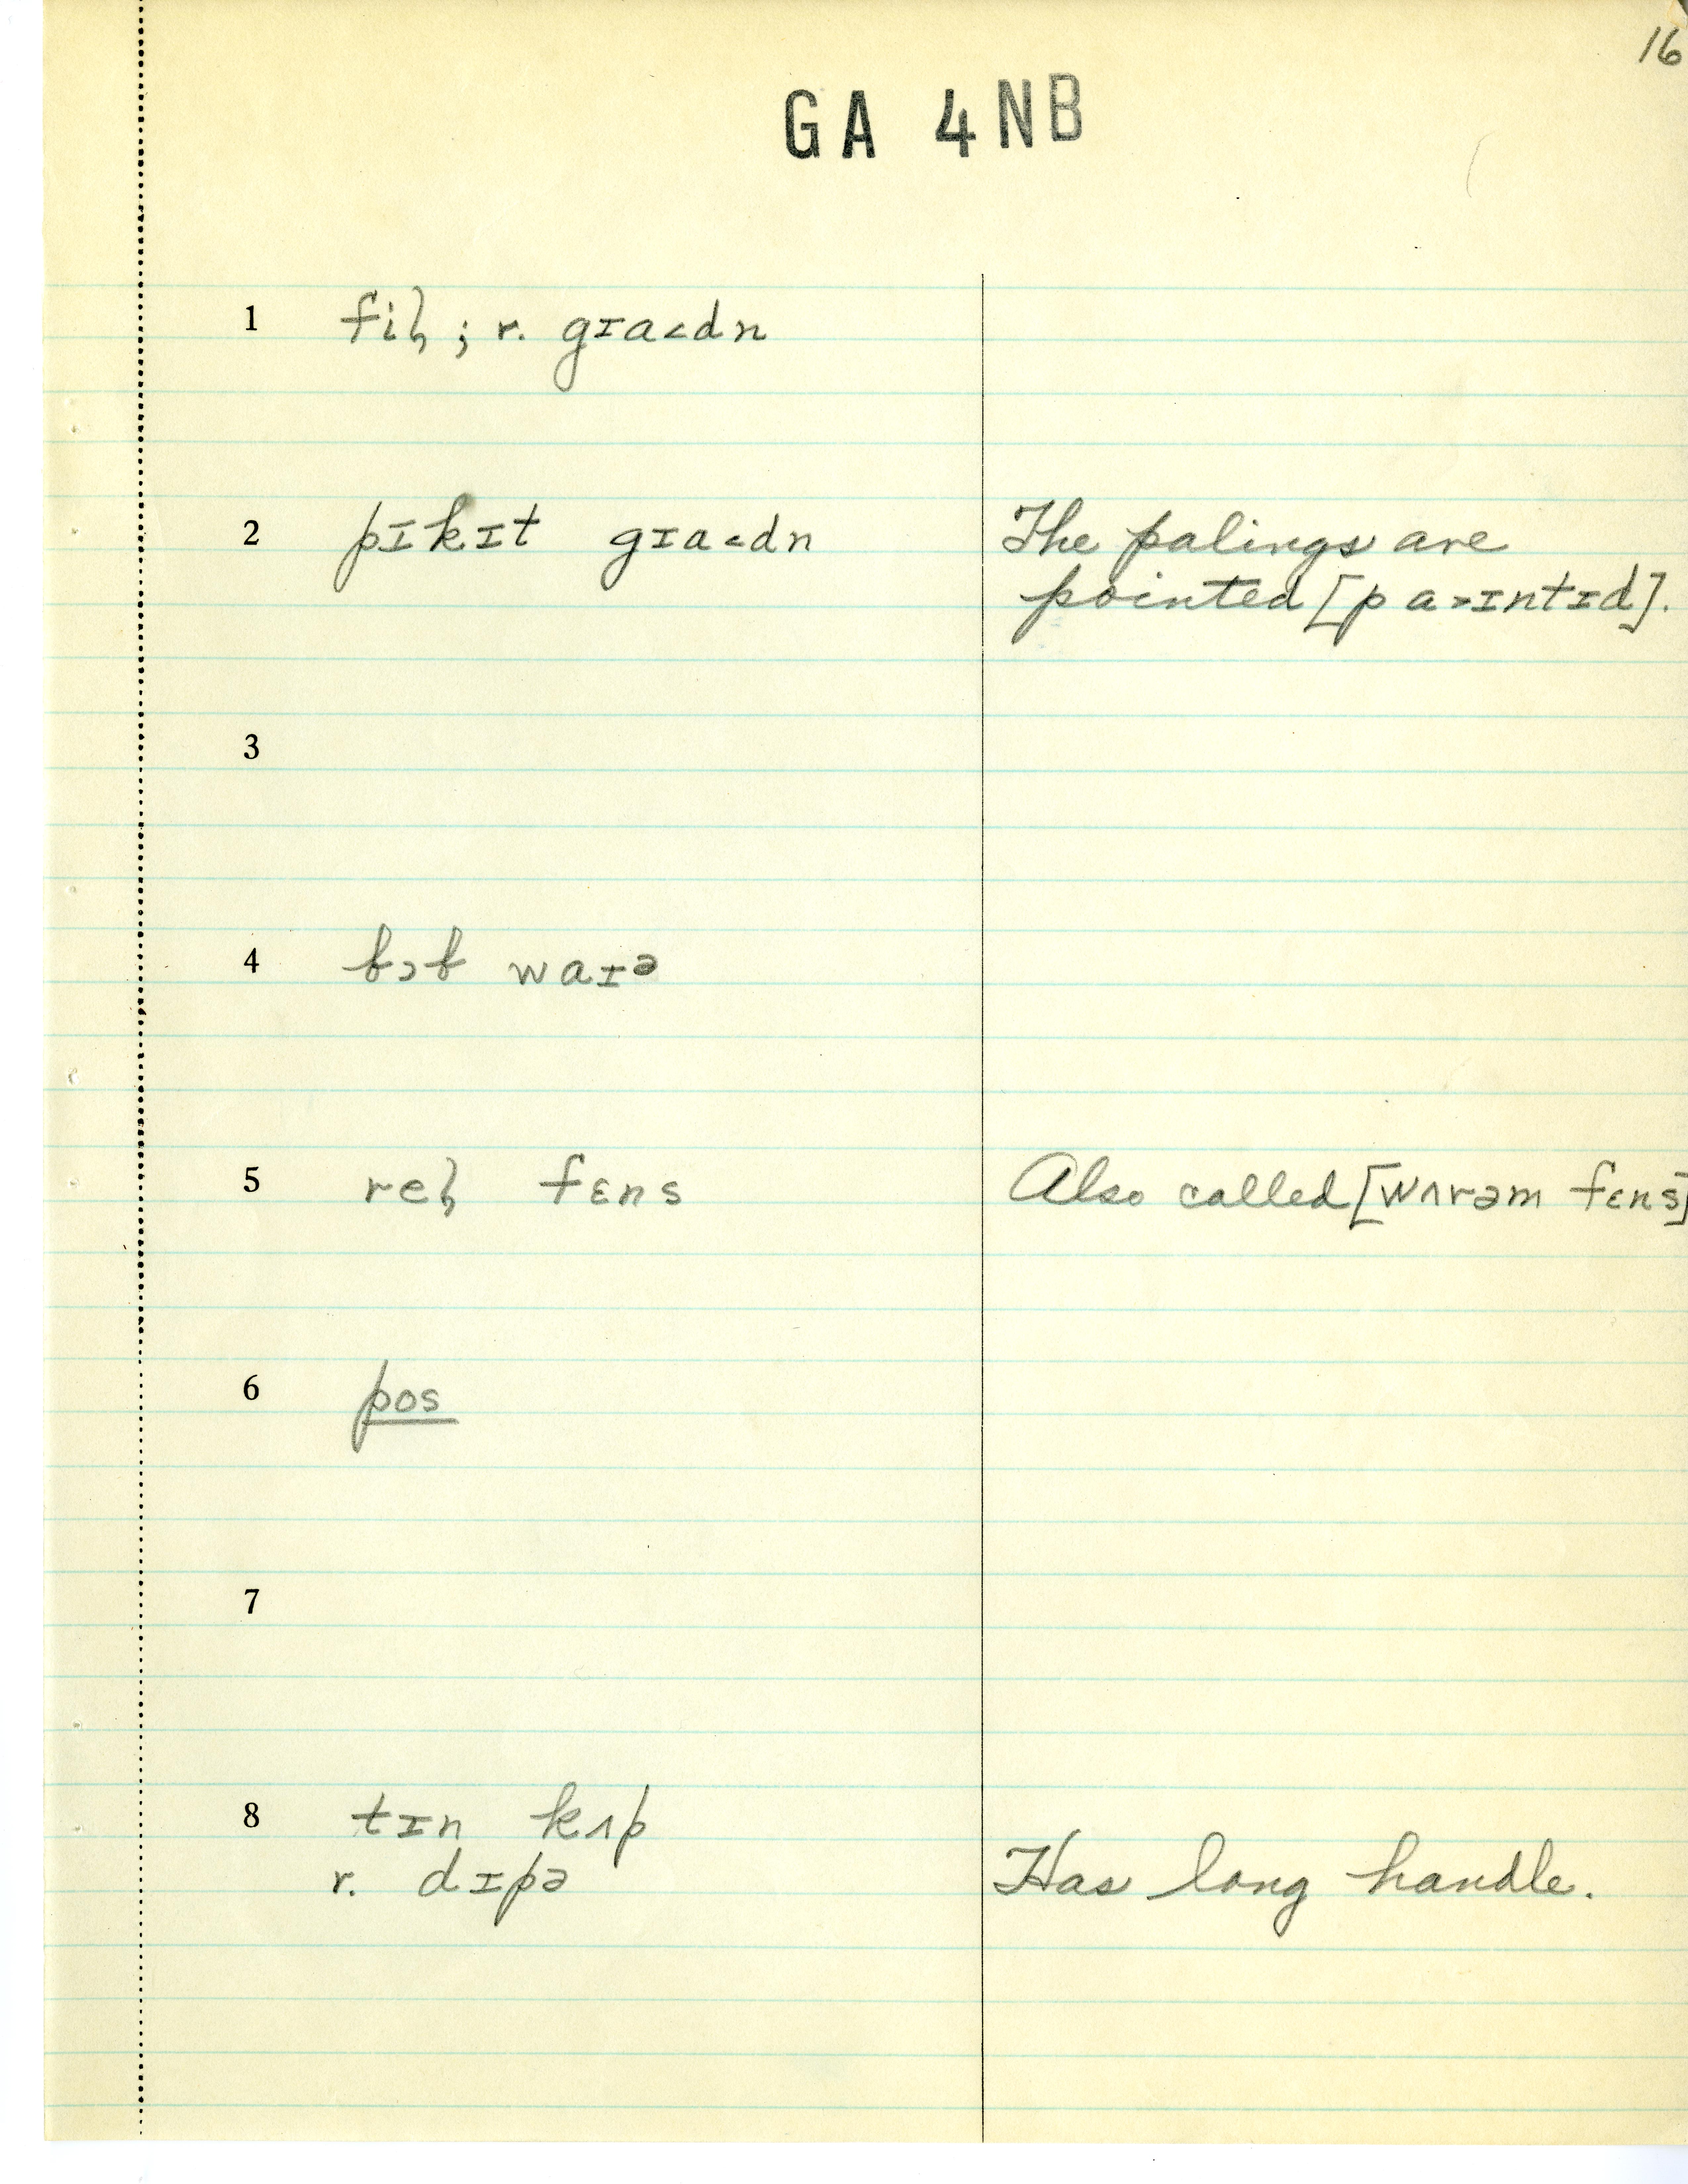 16
GA 4NB
1 fiɫ ; r. gɪa˂dn
2 pɪkɪt gɪa˂dn The palings are
pointed [pa˃ɪntɪd].
3
4 bɔb waɪə
5 reɫ fɛns Also called [wʌrəm fɛns]
6 pos
7
8 tɪn kʌp
r. dɪpə Has long handle.